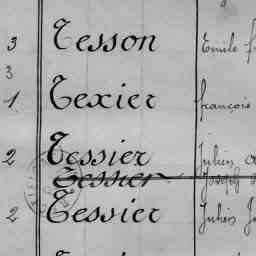 3 Tesson Emile
3
1 Texier françois
2 Tessier Julien
Tessier Joseph
2 Tessier Julien